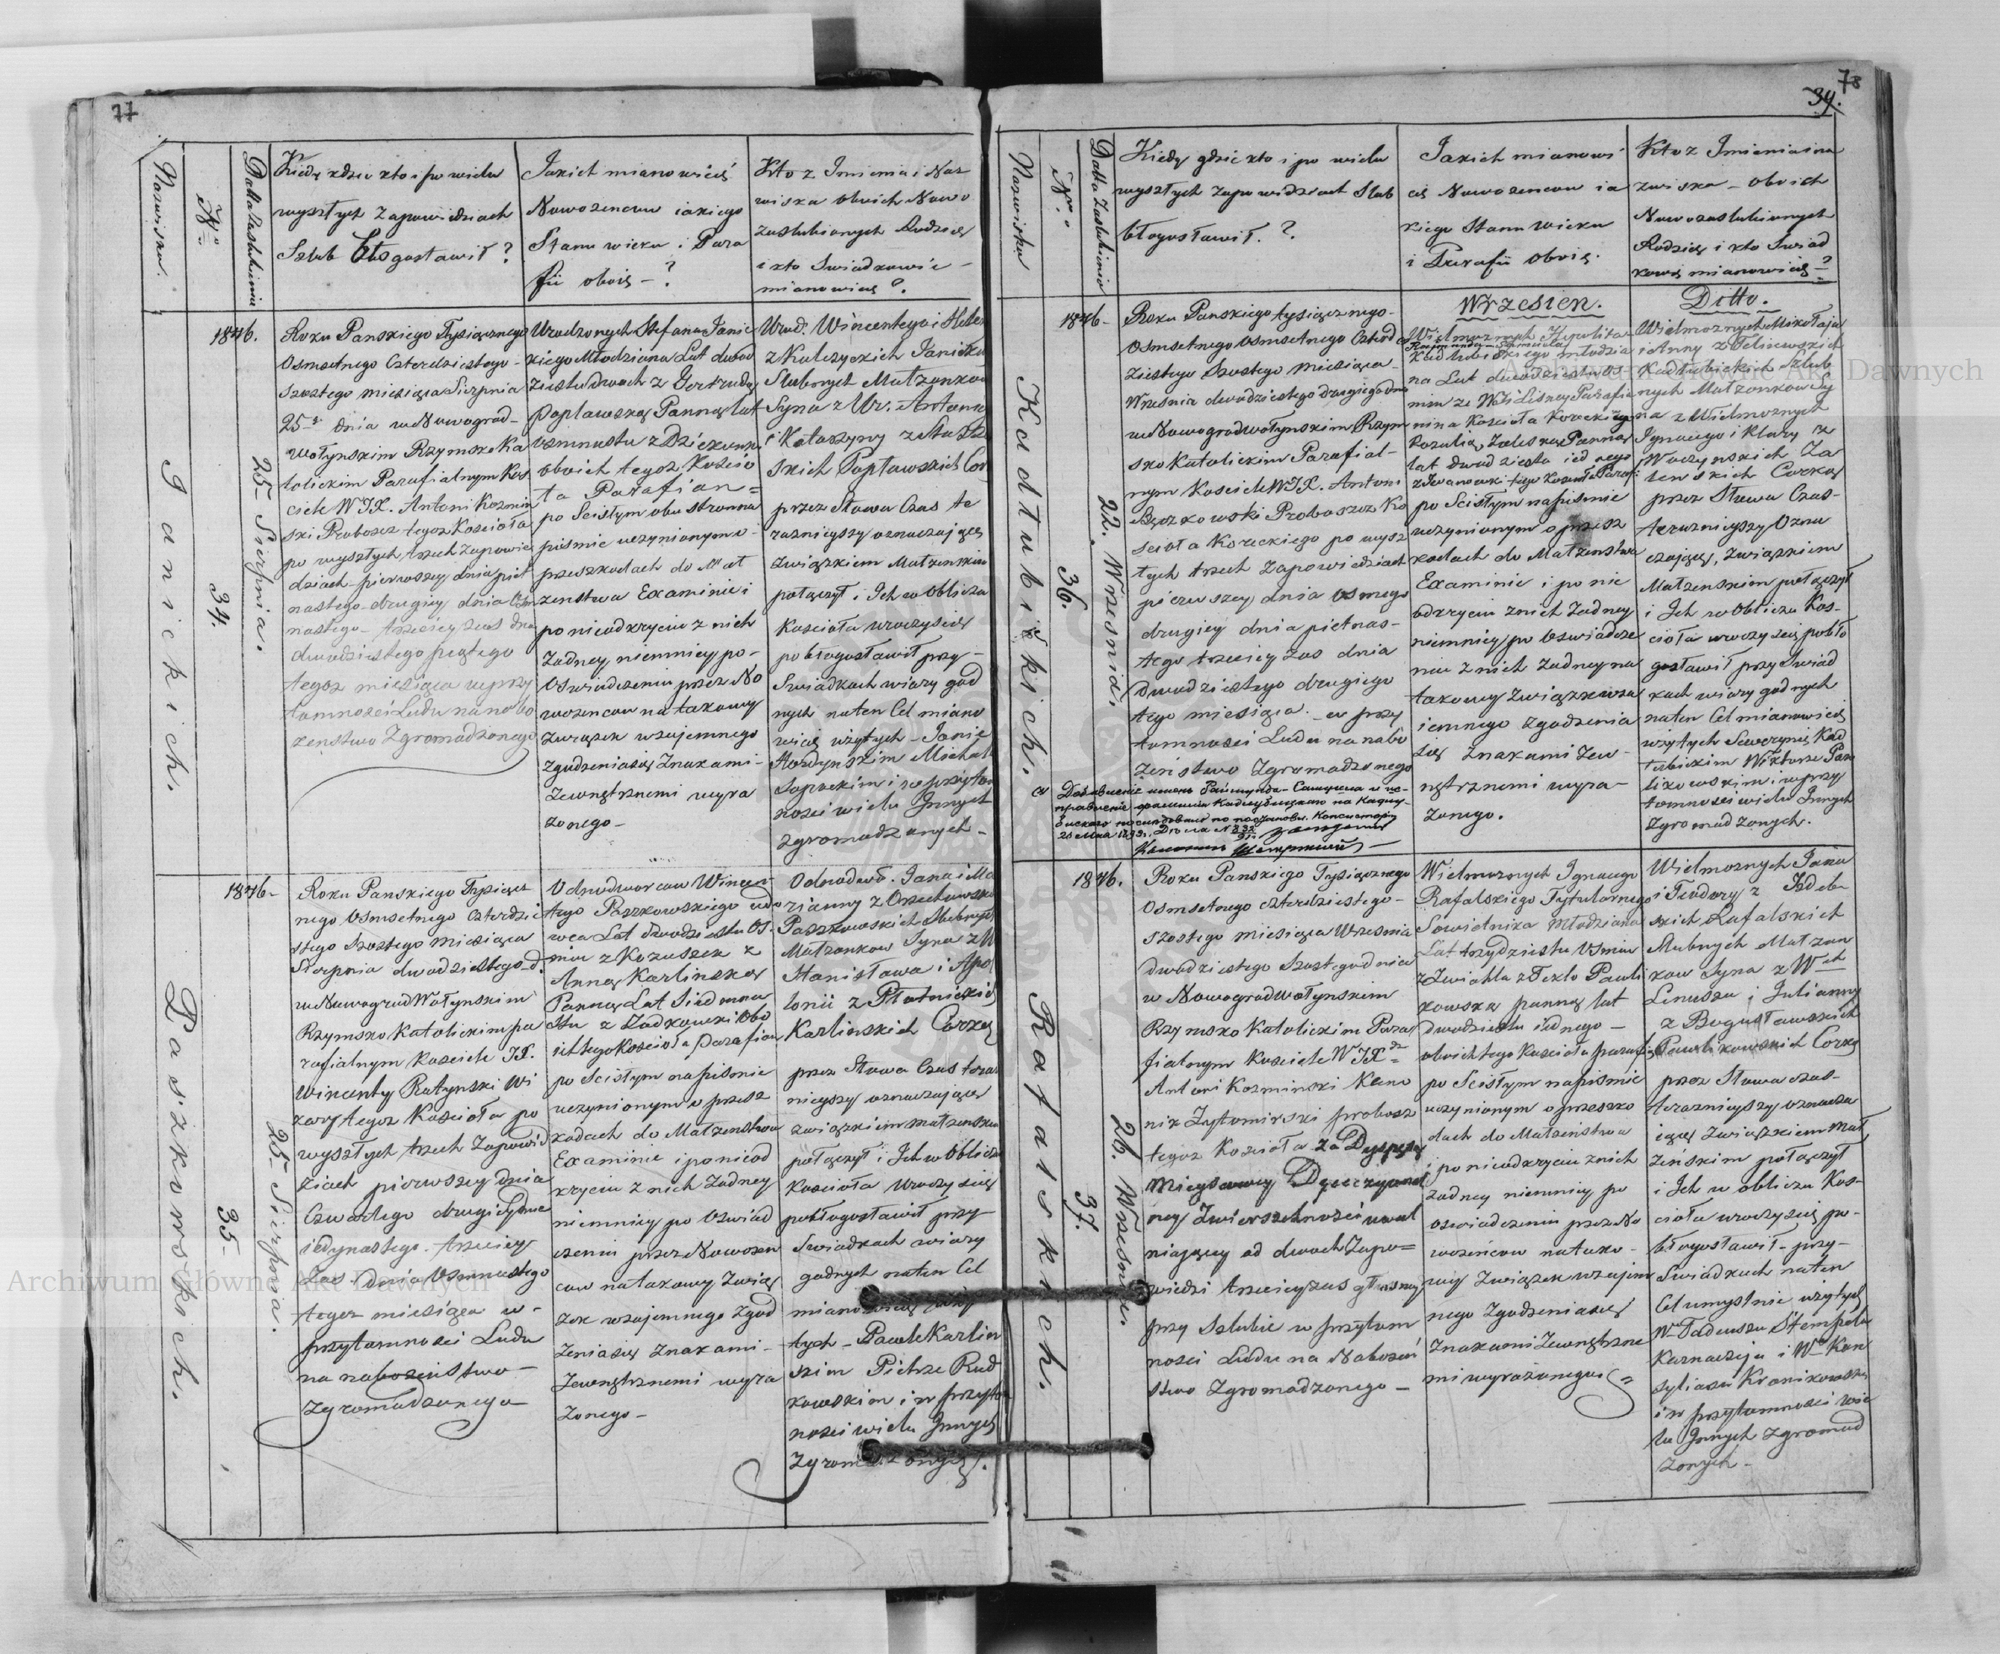 77
Nazwisko.
Nro
Datta Zaslubienia
Kiedy gdzie kto i po wielu
wyszłych Zapowiedziach
Szlub błogosławił?
Jakich mianowicie
Nowożencow iakiego
Stanu wieku i Para
fii oboie - ?
Kto z Imienia i Naz
wiska oboich Nowo
zaslubionych Rodzicy
i kto Swiadkowie -
mianowicie?
Janickich.
34.
25 Sierpnia.
1846.
Roku Panskiego Tysiącznego
Osmsetnego Czterdziestego -
Szostego miesiąca Sierpnia
25 dnia w Nowograd-
wołynskim Rzymsko Ka
tolickim Parafialnym Koś
ciele WJX. Antoni Kozmin
ski Proboszcz tegoz Kościoła
po wyszłych trzech Zapowie
dziach - pierwszey dnia piet
nastego drugiey dnia
nastego - trzeciey zas dnia
dwudziestego piątego
tegoz miesiąca w przy
tomności Ludu na nabo
zenstwo Zgromadzonego
Urodzonych Stefana Janic
kiego Młodziana Lat dwad
ziestu dwoch z Gertrudą
Popławską Panną lat
osmnastu
oboich tegoz Kościo
ła Parafian =
po Scisłym obu stronna
piśmie uczynionym o -
przeszkodach do Mał
żenstwa Examinie i
po nieodkryciu z nich
Żadney, niemniey po -
Oświadczeniu przez No
wozencow na takowy
Związek wzajemnego
Zgodzenia się Znakami -
Zewnętrznemi wyra
żonego -
Urod. Wincentego i Helen
z Kulczyckich Janickich
Slubnych Małzonkow
Syna z Ur. Antoni
i Katarzyny
skich Popławskich Cor
przez Słowa Czas te
raznieyszy oznaczaiące
Związkiem Małzenskim
połączył i Ich w Obliczu
Kościoła uroczyscie
pobłogosławił przy -
Swiadkach wiary god
nych na ten Cel miano
wicie użytych - Janie
Michale
i w przytom
ności wielu Innych
zgromadzonych -
Paszkowskich.
35.
25 Sierpnia.
1846 -
Roku Panskiego Tysiącz
nego Osmsetnego Czterdzie
stego Szostego Miesiąca
Sierpnia dwudziestego d.
w Nowogrodwołynskim
Rzymsko Katolickim pa
rafialnym Kościele JX.
Wincenty Ratynski Wi
kary tegoz Kościoła po
wyszłych trzech Zapowied
ziach pierwszey dnia
Czwartego drugiey dnia
iedynastego. trzeciey
Zas dnia Osmnastego
tegoz miesiąca w -
przytomności Ludu
na nabozenstwo -
Zgromadzonego -
Odnodworcow Wincen
tego Paszkowskiego wdo
wca Lat dwudziestu Os-
miu z Kozuszek z
Anną Karlinską
Panną Lat Siedmna
stu
ich tego Kościoła Parafian
po Scisłym na piśmie
uczynionym o przesz
kodach do Małzenstwa
Examinie i po nieod
kryciu z nich Żadney
niemniey po Oswiad
czeniu przez Nowozen
cow na takowy Związ
zek wzajemnego Zgod
Zenia się Znakami -
Zewnętrznemi wyra
żonego -
Odnodwo. Jana i Ma
rianny z Orzechowskich
Paszkowskich Slubnych
Małzonkow Syna z
Stanisława i Apo
lonii z Płotnickich
Karlinskich Corką
przez Słowa Czas teraz
nieyszy oznaczaiące
związkiem małzenskim
połączył i Ich w Obliczu
Kościoła Uroczyscie
pobłogosławił przy -
Swiadkach wiary
godnych na ten Cel
mianowicie użytych
tych - Pawle Karlin
skim Piotrze Rud
kowskim i w przytom
ności wielu Innych
Zgromadzonych.
78
39.
Nazwisko
Nro
Datta Zaslubienia
Kiedy gdzie kto i po wielu
wyszłych Zapowiedziach Slub
błogosławił. ?
Jakich mianowi
cie Nowozencow ia
kiego Stanu wieku
i Parafii oboie.
Kto z Imienia i na
zwiska - oboich
Nowozaslubionych
Rodzicy i kto Swiad
kowie mianowicie ?
Wrzesien.
Ditto.
Kadłubickich.
36.
22. Wrzesnia.
1846 -
Roku Panskiego tysiącznego -
Osmsetnego Osmsetnego Czterd
Ziestego Szostego Miesiąca -
Wrzesnia dwudziestego drugiego dnia
w Nowogradwołynskim Rzym
sko Katolickim Parafial-
nym Kosciele WJX. Antoni
Bączkowski Proboszcz Ko
scioła Koreckiego po wysz
łych trzech Zapowiedziach
pierwszey dnia Osmego
drugiey dnia piętnas-
tego trzeciey Zas dnia
Dwudziestego drugiego
tego miesiąca - w przy
tomności Ludu na nabo
żeństwo Zgromadzonego
Wielmoznych Hypolita
Kadłubickiego młodzia
na Lat dwudziestu Os-
miu Parafia
nina Koscioła Koreckiego
Rozalią Zaleską Panną
lat dwudziestu iednego
po Scisłym na piśmie
uczynionym o przesz
kodach do Małzenstwa
Examinie i po nie
odkryciu z nich Żadney
niemniey po Oswiadcze
niu z nich Żadney na
takowy Związek wza
iemnego zgodzenia
się Znakami Zew -
nętrznemi wyra -
żonego.
Wielmoznych Mikołaja
i Anny z
Kadłubickich Szlub
nych Małzonkow Sy
na z Wielmoznych
Ignacego i Klary z
Woczynskich Za
leskich Corką
przez Słowa Czas -
teraznieyszy Ozna
czaiące, Związkiem
Małzenskim połączył
i Ich w Obliczu Kos-
cioła uroczyscie pobło
gosławił przy Swiad
kach wiary godnych
na ten Cel mianowicie
użytych Seweryni Kad
łubickim Wiktorze Paw
likowskim i w przy
tomności wielu Innych
Zgromadzonych.
Rafalskich.
37.
26. Wrzesnia.
1846.
Roku Panskiego Tysiącznego
Osmsetnego czterdziestego -
Szostego miesiąca Wrzesnia
dwudziestego Szostego dnia
w Nowogradwołynskim
Rzymsko Katolickim Para
fialnym Kosciele WJX
Antoni Kozminski Kano
nik Zytomirski probosz
tegoz Koscioła za Dyspensą
Mieyscowey Dyecezyanal
ney Zwierzchności uwal
niaiącey od dwoch Zapo =
wiedzi trzeciey zas głoszoney
przy Szlubie w przytom
ności Ludu na Nabożeń
stwo Zgromadzonego -
Wielmoznych Ignacego
Rafalskiego Tytularnego
Sowietnika Młodziana
Lat trzydziestu Osmiu
z Zwiahla z Teklą Pawli
kowską panną lat
dwudziestu iednego -
oboich tego Koscioła parafii
po Scisłym na piśmie
uczynionym o przeszko
dach do Małzeństwa
i po nieodkryciu z nich
żadney niemniey po
oswiadczeniu przez No
wozeńcow na tako -
wy Związek wzajem
nego Zgodzenia się
Znakami Zewnętrzne
mi wyrażonego =
Wielmoznych Jana
i Teodory z Izdeb
skich Rafalskich
Slubnych Małzon
kow Syna z W
Linusza i Julianny
z Bogusławskich
Pawlikowskich Corką
przez Słowa czas -
teraznieyszy oznacza
iące, Związkiem Mał
żeńskim połączył
i Ich w obliczu Kos-
cioła uroczyscie po -
błogosławił - przy -
Swiadkach na ten
Cel umyslnie użytych
W. Tadeuszu Stempelu
Kaznaczeju i W.
i w przytomności wie
lu Innych Zgromad
zonych -
Archiwum Główne Akt Dawnych
Archiwum Główne Akt Dawnych